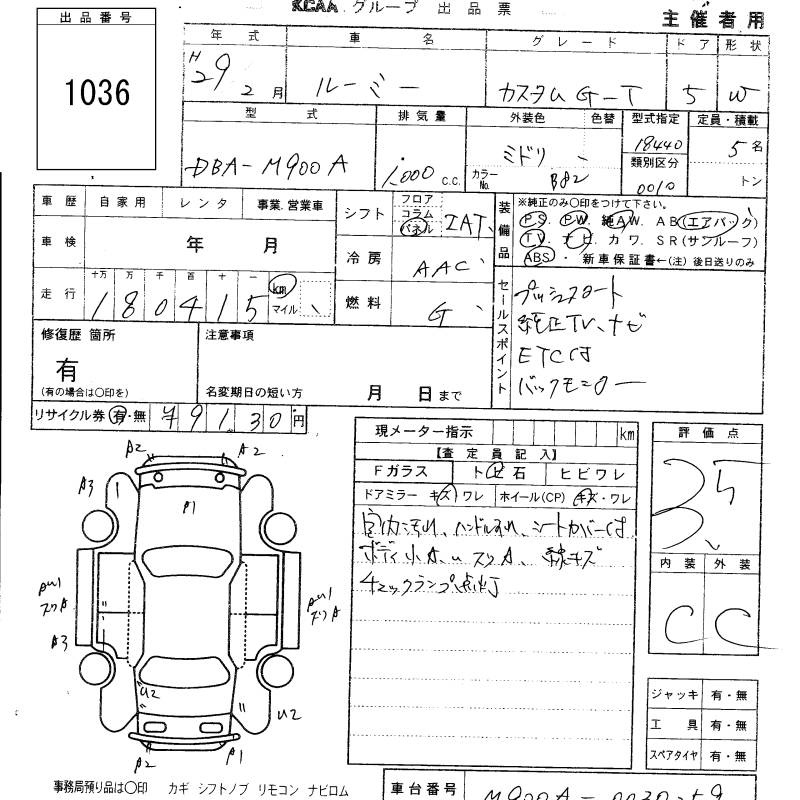 KCAA グループ 出品票
主催者用
出品番号
1036
年式 車名 グレード ドア 形状
H29 2月 ルーミー カスタム G-T 5 W
型式 排気量 外装色 色替 型式指定 定員・積載
DBA-M900A 1,000 C.C. ミドリ カラーNo. B82 18440 5名
類別区分 0010 トン
車歴 自家用 レンタ 事業.営業車
シフト フロア コラム パネル IAT
装備品
※純正のみ〇印をつけて下さい。
P S. P W. 純A W. A B (エアバック)
T V. ナビ. カ ワ. S R (サンルーフ)
ABS ・ 新車保証書←(注) 後日送りのみ
車検 年 月
冷房 AAC
走行 十万 万 千 百 十 一 km マイル
180415
燃料 G
セールスポイント
プッシュスタート
純正TV、ナビ
ETC付
バックモニター
修復歴 箇所
有
(有の場合は〇印を)
注意事項
名変期日の短い方 月 日まで
リサイクル券 有・無 ¥9130円
現メーター指示 km
【査定員記入】
Fガラス トビ石 ヒビワレ
ドアミラー キズ ワレ ホイール(CP) キズ・ワレ
室内汚れ、ハンドルスレ、シートカバー付
ボディ小A.U スリA、線キズ
チェックランプ点灯
評価点
3.5
内装 外装
C C
ジャッキ 有・無
工具 有・無
スペアタイヤ 有・無
A2 A2
A3 P1
AU1 スリA
AU1 スリA
A3
U2
U2
A2 A1
事務局預り品は〇印 カギ シフトノブ リモコン ナビロム
車台番号